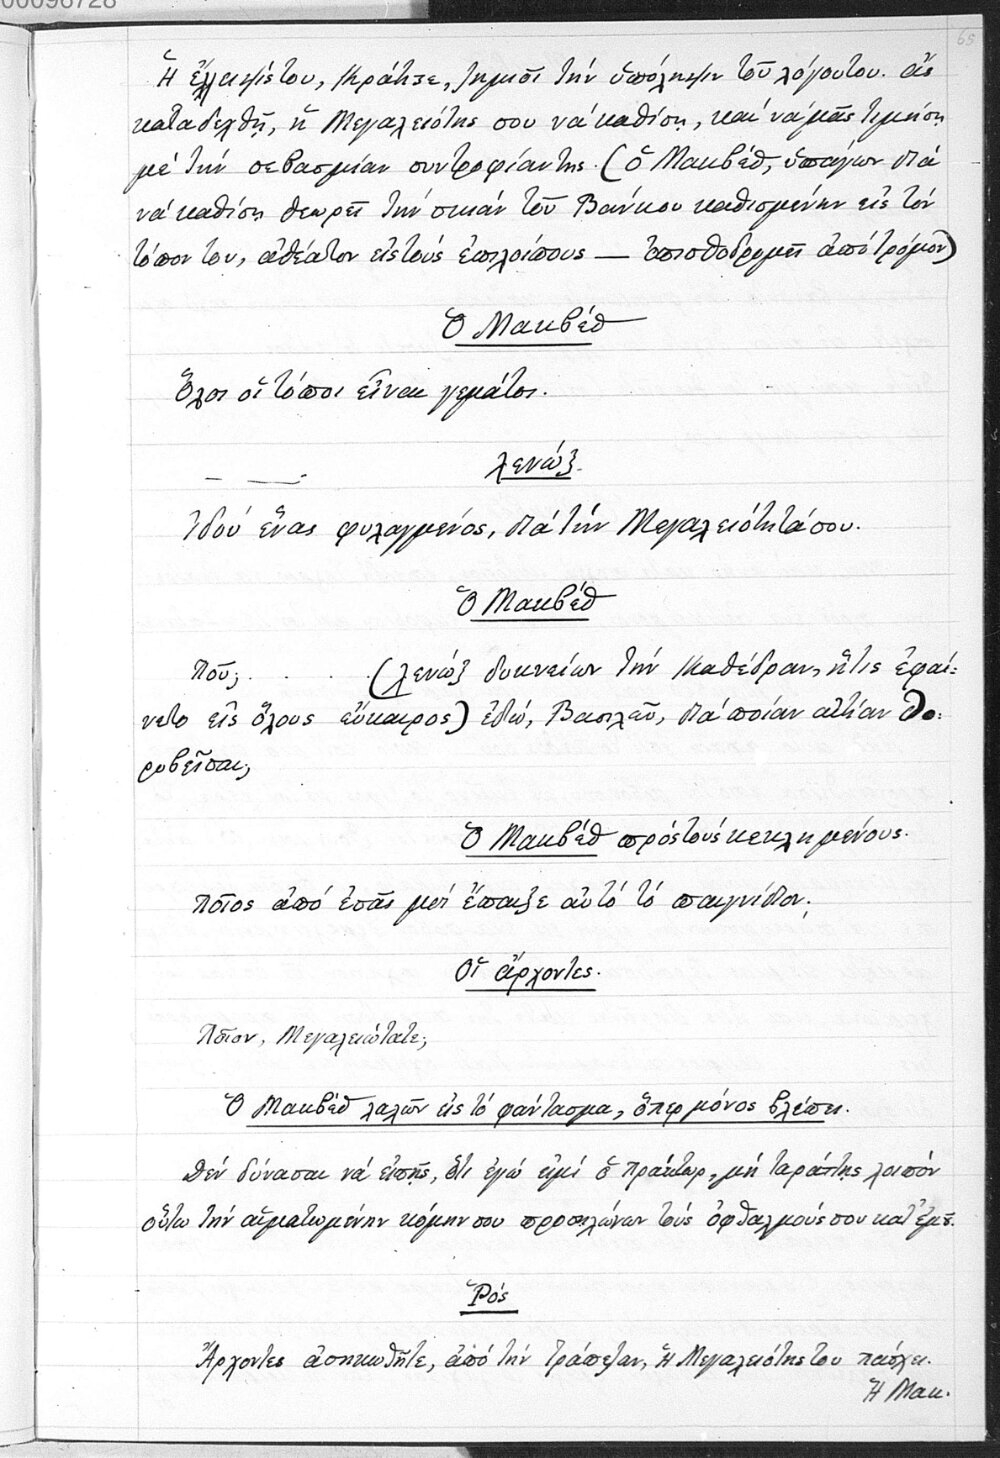 00096728
65
Ἡ ἔλλειψίς του, Κράτιξε, ζημιοῖ τήν ὑπόληψιν τοῦ λόγου του. ἄς
καταδεχθῇ, ἡ Μεγαλειότης σου νά καθίσῃ, καί νά μᾶς τιμήσῃ
μέ τήν σεβασμίαν συντροφίαν της. (ὁ Μακβέθ, ὑπάγων διά
νά καθίσῃ θεωρεῖ τήν σκιάν τοῦ Βάνκου καθισμένην εἰς τόν
τόπον του, ἀθέατον εἰς τούς ἐπιλοίπους — ὀπισθοδρομεῖ ἀπό τρόμον)
Ὁ Μακβέθ
Ὅλοι οἱ τόποι εἶναι γεμάτοι.
Λενώξ.
Ἰδού ἕνας φυλαγμένος, διά τήν Μεγαλειότητά σου.
Ὁ Μακβέθ
Ποῦ; . . . . (Λενώξ δεικνείων τήν καθέδραν, ἥτις ἐφαί-
νετο εἰς ὅλους εὔκαιρος) ἐδώ, Βασιλεῦ, διά ποίαν αἰτίαν θο-
ρυβεῖσαι;
Ὁ Μακβέθ πρός τούς κεκλημένους.
Ποῖος ἀπό ἐσᾶς μοί ἔπαιξε αὐτό τό παιγνίδιον;
Οἱ ἄρχοντες.
Ποῖον, Μεγαλειώτατε;
Ὁ Μακβέθ λαλῶν εἰς τό φάντασμα, ὅπερ μόνος βλέπει.
Δέν δύνασαι νά εἰπῇς, ὅτι ἐγώ εἰμί ὁ πράκτωρ, μή ταράττῃς λοιπόν
οὕτω τήν αἱματωμένην κόμην σου προσηλώνων τούς ὀφθαλμούς σου κατ' ἐμέ.
Ῥός
Ἄρχοντες ἀσηκωθῆτε, ἀπό τήν τράπεζαν, ἡ Μεγαλειότης του πάσχει.
Ἡ Μακ.